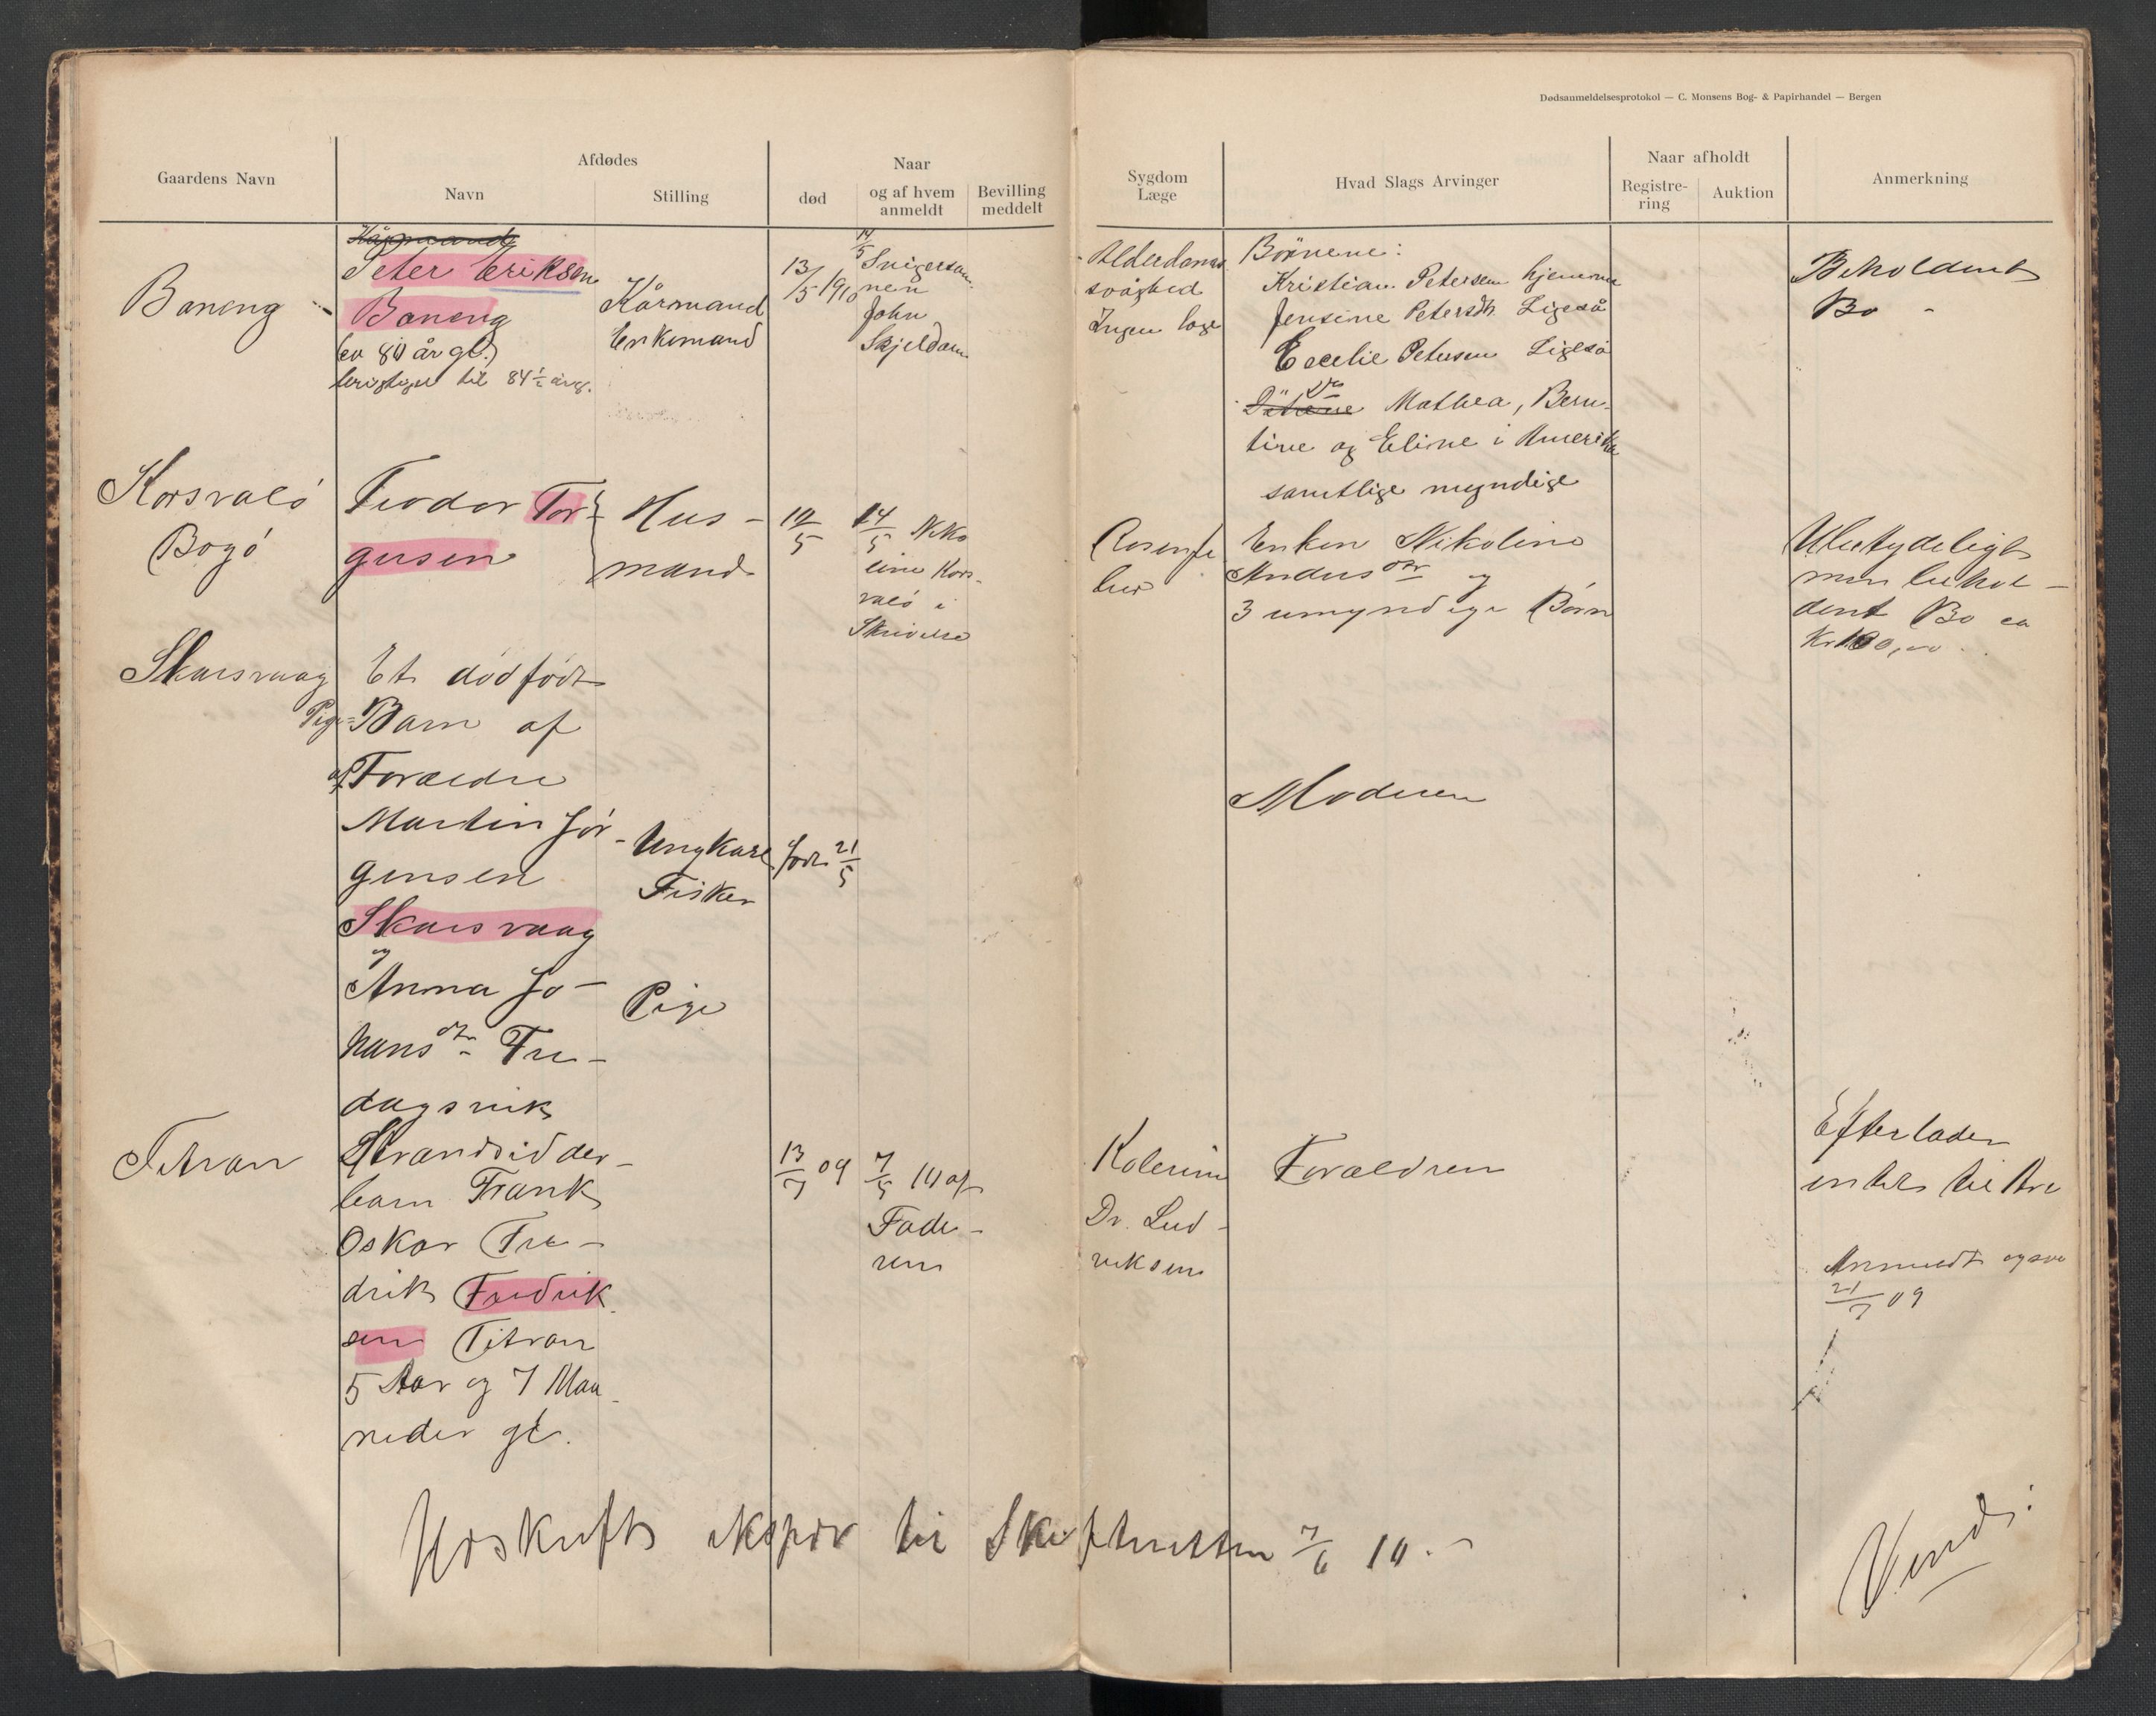 Dødsanmeldelsesprotokol — C. Monsens Bog- & Papirhandel — Bergen
Gaardens Navn
Afdødes
Navn
Stilling
død
Naar
og af hvem
anmeldt
Bevilling
meddelt
Sygdom
Læge
Hvad Slags Arvinger
Naar afholdt
Registre-
ring
Auktion
Anmerkning
Baneng
Kårmand
Peter Eriksen
Baneng
(ca 80 år gl.)
til 84 1/2 årg.
Kårmand
Enkemand
13/5 1910
14/5 Svigersøn
nen
John
Skjeldam
Alderdoms
svaghed
Ingen læge
Börnene:
Kristian Petersen hjemme
Jensine Petersdtr. Ligeså
Cecelie Petersen Ligeså
Mathea, Bern-
tine og Eline i Amerika
samtlige myndige
Beholdent
Bo -
Korsvalö
Bogö
Teodor Tor
gersen
Hus-
mand
14/5 Niko
line Kors-
valö i
Skrivelse
Enken Nikoline
Andersdtr og
3 umyndige Børn
Ubetydeligt
men behol-
dent Bo ca
Kr 100,00
Skarsvaag
Et dödfödt
Pige-Barn af
af Foræedre
Martin Jör-
gensen
Skarsvaag
og
Anna Jo-
hansdtr Fre-
dagsvik
Ungkarl
Fisker
Pige
födt 21/5
Moderen
Titran
Strandsidder-
barn Frank
Oskar Fre-
drik Fredrik
sen Titran
5 Aar og 7 Maa-
neder gl.
13/7 09
7/5 10 af
Fade-
ren
Kolerine
Dr. Lud-
viksen
Forældren
Efterlader
intet til Arv
Anmeldt ogsaa
21/7 09
Udskrift ekspdr til Skifteretten 7/6 10.-
Vend: